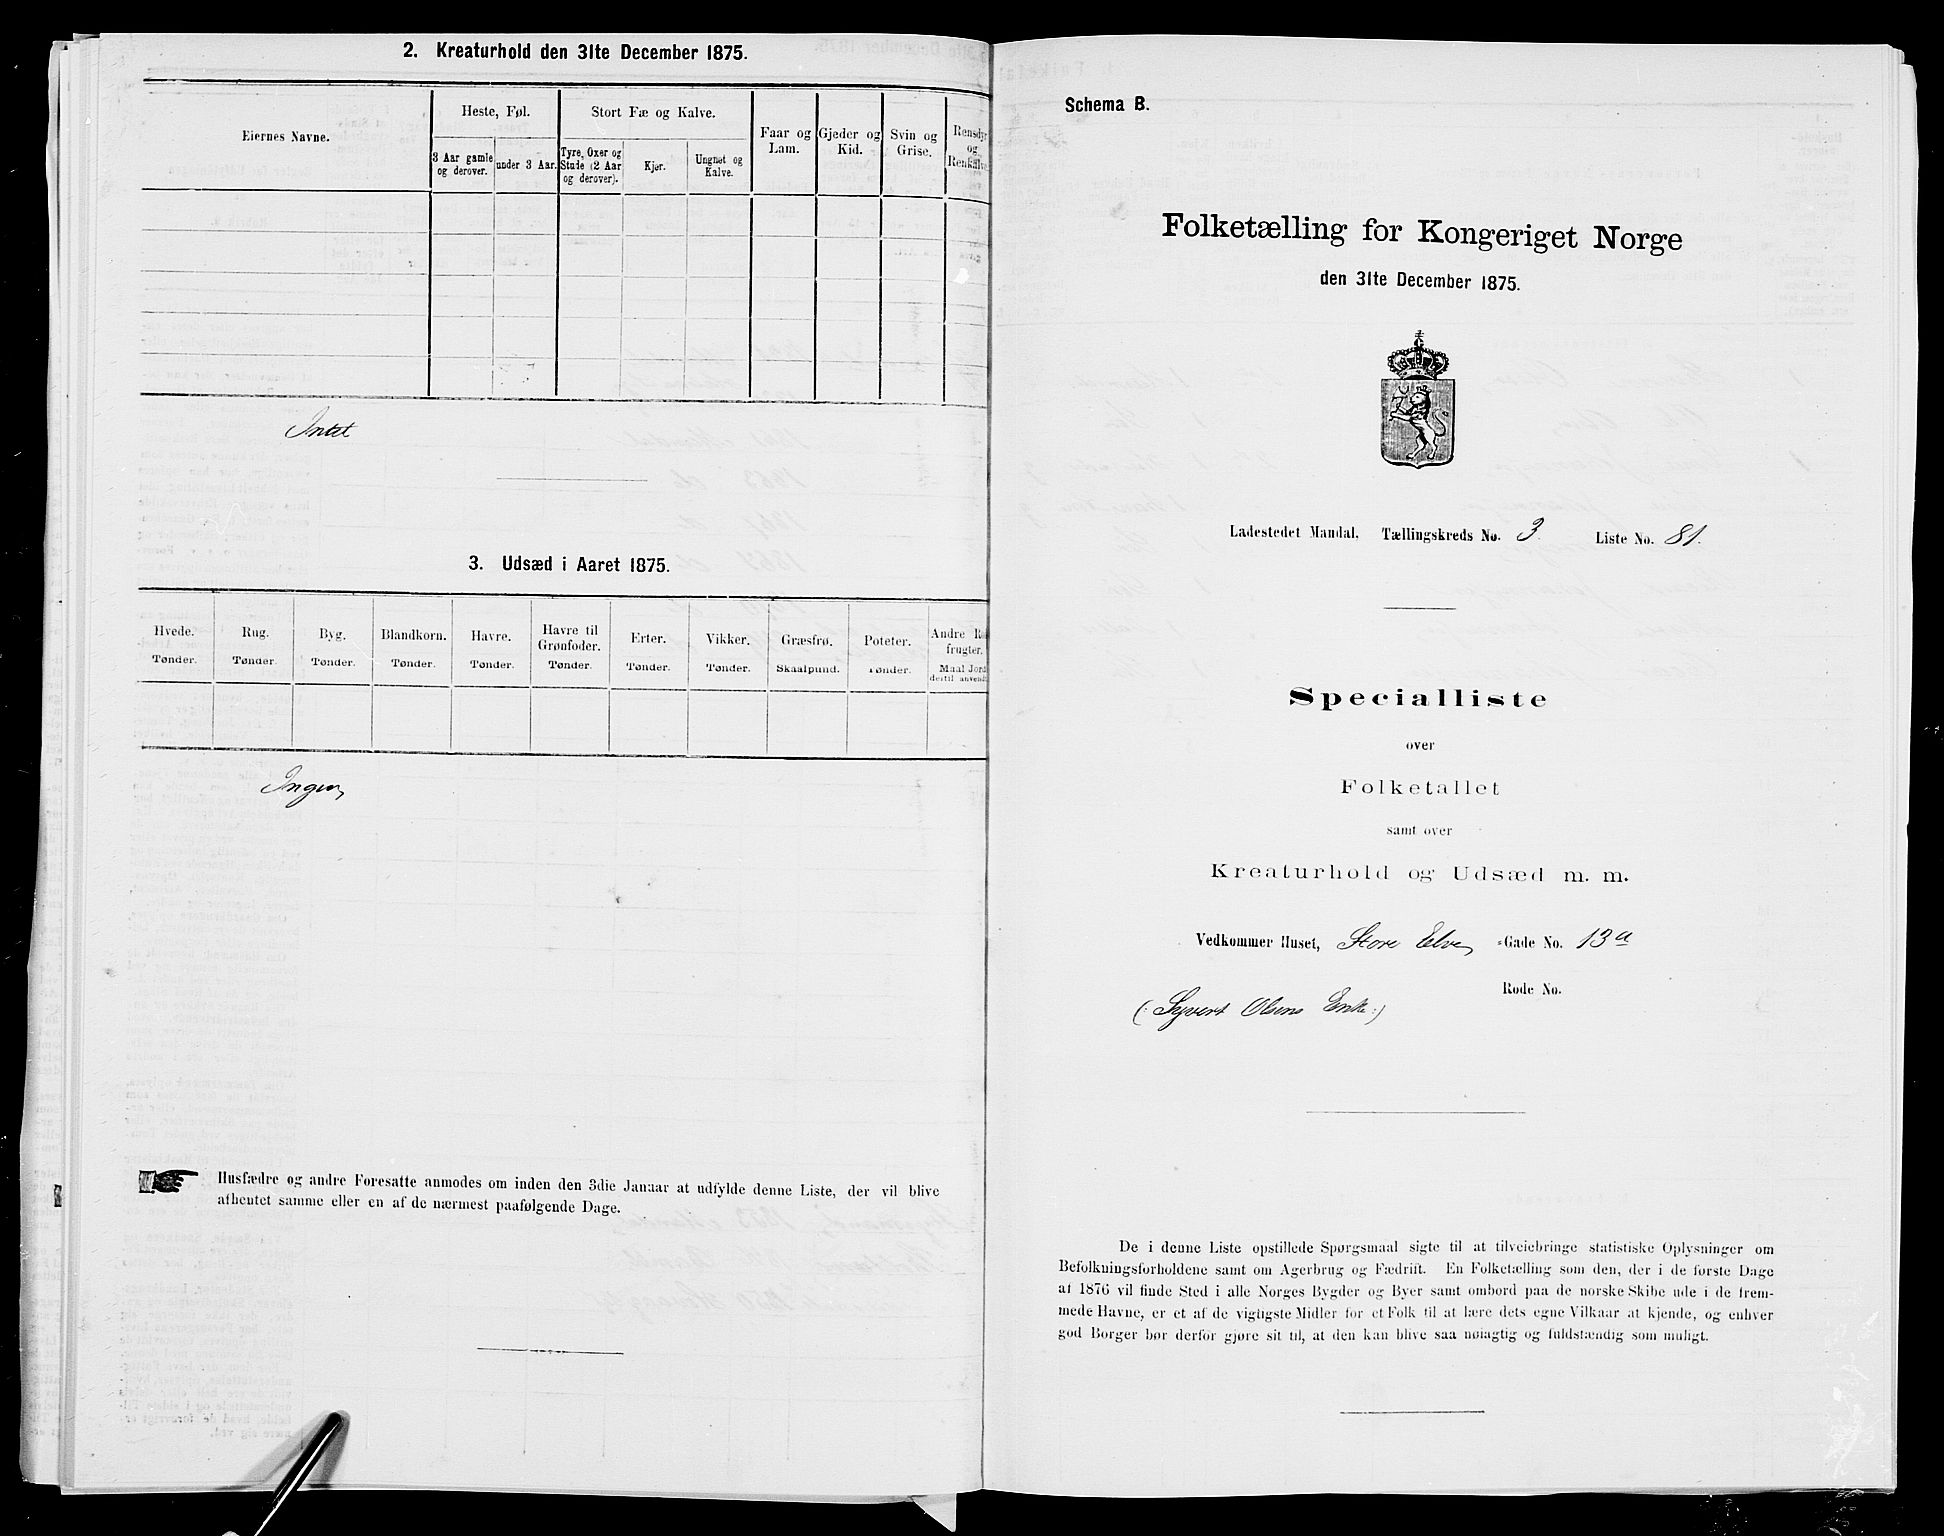 2. Kreaturhold den 31te December 1875.
Eiernes Navne.
Heste, Føl.
Stort Fæ og Kalve.
Faar og Lam.
Gjeder og Kid.
Svin og Grise.
Rensdyr og Renkalve
3 Aar gamle og derover.
under 3 Aar.
Tyre, Oxer og Stude (2 Aar og derover).
Kjør.
Ungnet og Kalve.
Intet
3. Udsæd i Aaret 1875.
Hvede.
Rug.
Byg.
Blandkorn.
Havre.
Havre til Grønfoder.
Erter.
Vikker.
Græsfrø.
Poteter.
Andre frugter.
Tønder.
Tønder.
Tønder.
Tønder.
Tønder.
Tønder.
Tønder.
Tønder.
Skaalpund.
Tønder.
Maal Jord dertil anvendt
Ingen
Husfædre og andre Foresatte anmodes om inden den 3die Januar at udfylde denne Liste, der vil blive
afhentet samme eller en af de nærmest paafølgende Dage.
Schema B.
Folketælling for Kongeriget Norge
den 31te December 1875.
Ladestedet Mandal, Tællingskreds No. 3. Liste No. 81.
Specialliste
over
Folketallet
samt over
Kreaturhold og Udsæd m. m.
Vedkommer Huset, Store Elve -Gade No. 13a
Rode No.
(: Syvert Olsens Enke :)
De i denne Liste opstillede Spørgsmaal sigte til at tilveiebringe statistiske Oplysninger om
Befolkningsforholdene samt om Agerbrug og Fædrift. En Folketælling som den, der i de første Dage
af 1876 vil finde Sted i alle Norges Bygder og Byer samt ombord paa de norske Skibe ude i de frem-
mede Havne, er et af de vigtigste Midler for et Folk til at lære dets egne Vilkaar at kjende, og enhver
god Borger bør derfor gjøre sit til, at den kan blive saa nøiagtig og fuldstændig som muligt.